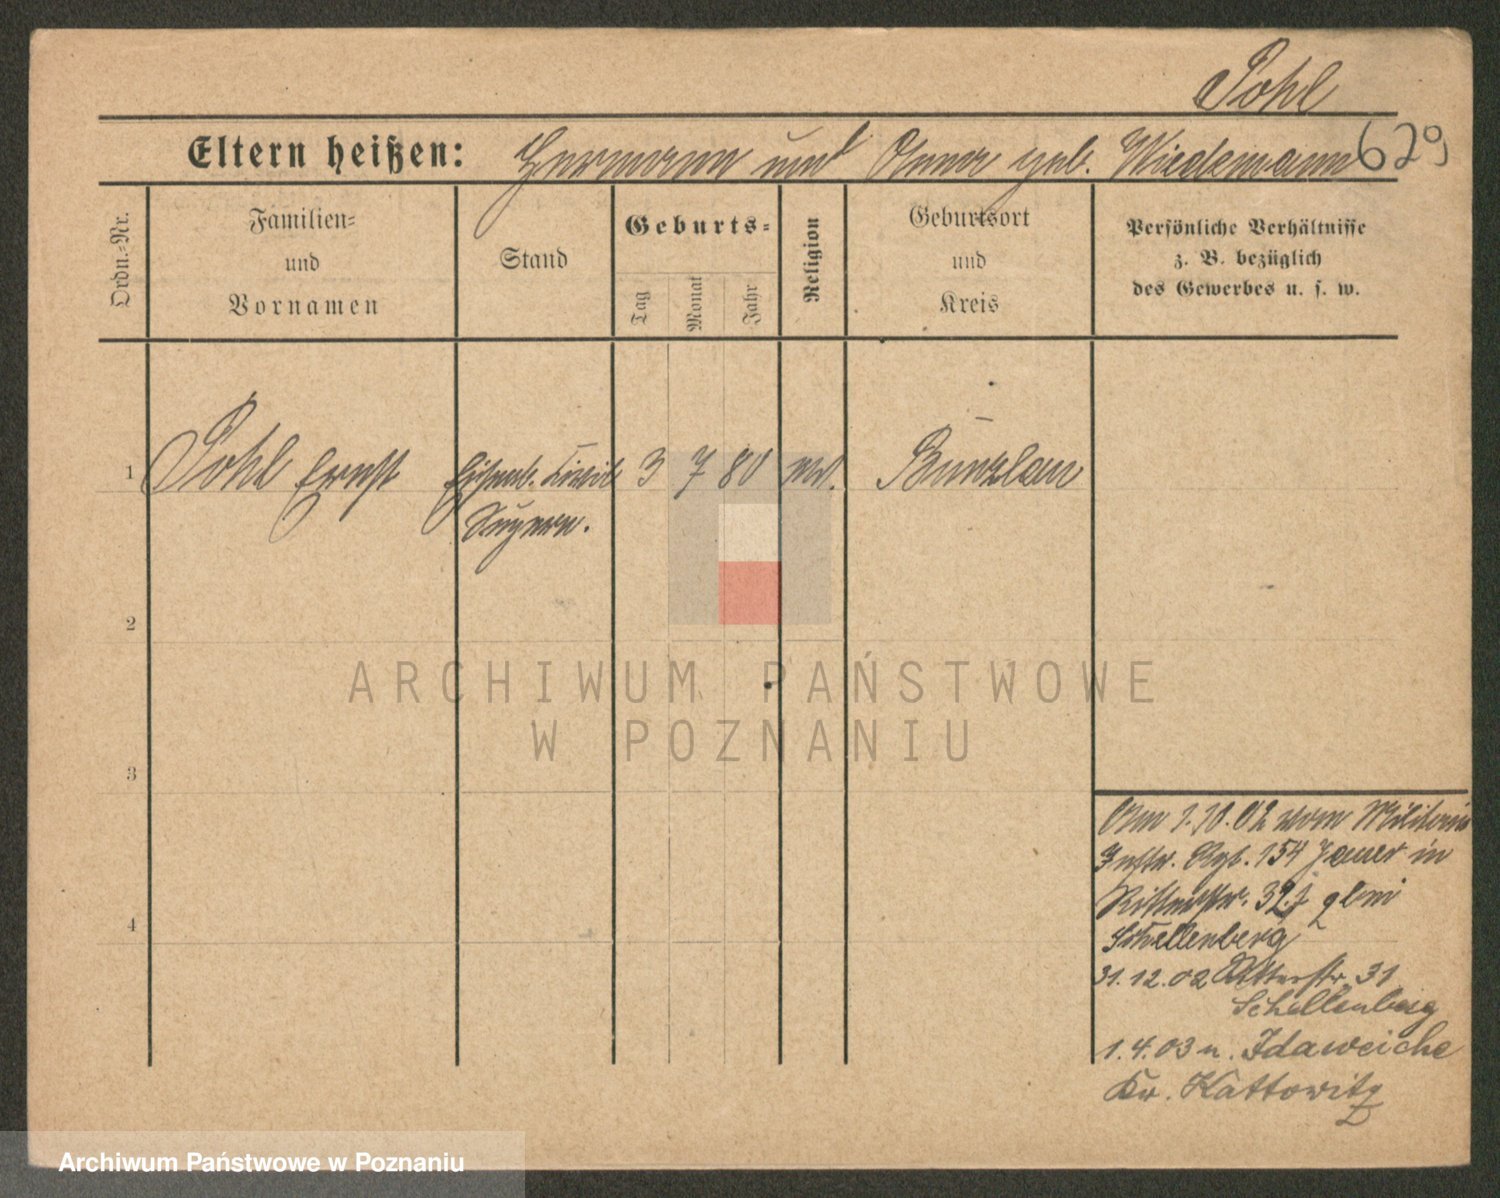 Pohl
629
Eltern heißen: Hermann und Anna geb. Wiedemann
Ordn.-Nr.
Familien-
und
Vornamen
Stand
Geburts-
Tag
Monat
Jahr
Religion
Geburtsort
und
Kreis
Persönliche Verhältnisse
z. B. bezüglich
des Gewerbes u. s. w.
1 Pohl Ernst Eisenb. Civil 3 7 80 ev. Bunzlau
Supern.
2
3
4
Am 1.10.02 vom Militär
Inftr. Rgt. 154 Jauer in
Ritterstr. 32 bei
Schellenberg
31.12.02 Ritterstr 31
Schellenberg
1.4.03 n. Idaweiche
Kr. Kattowitz
ARCHIWUM PAŃSTWOWE
W POZNANIU
Archiwum Państwowe w Poznaniu